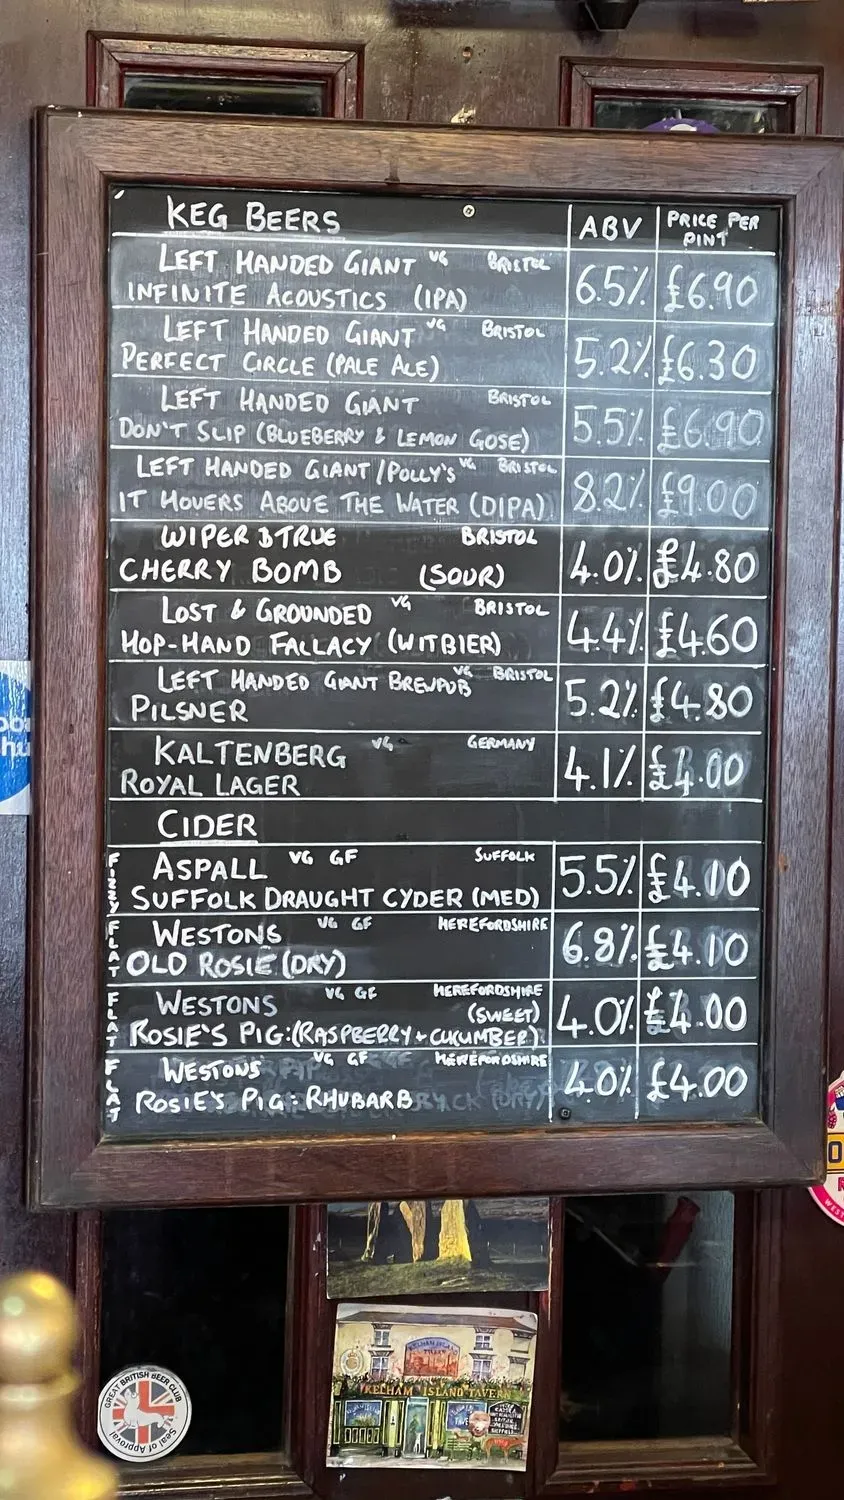 KEG BEERS ABV PRICE PER PINT
LEFT HANDED GIANT VG BRISTOL
INFINITE ACOUSTICS (IPA) 6.5% £6.90
LEFT HANDED GIANT VG BRISTOL
PERFECT CIRCLE (PALE ALE) 5.2% £6.30
LEFT HANDED GIANT BRISTOL
DON'T SLIP (BLUEBERRY & LEMON GOSE) 5.5% £6.90
LEFT HANDED GIANT/POLLY'S VG BRISTOL
IT HOVERS ABOVE THE WATER (DIPA) 8.2% £9.00
WIPER & TRUE BRISTOL
CHERRY BOMB (SOUR) 4.0% £4.80
LOST & GROUNDED VG BRISTOL
HOP-HAND FALLACY (WITBIER) 4.4% £4.60
LEFT HANDED GIANT BREWPUB VG BRISTOL
PILSNER 5.2% £4.80
KALTENBERG VG GERMANY
ROYAL LAGER 4.1% £4.00
CIDER
FIZZY ASPALL VG GF SUFFOLK
SUFFOLK DRAUGHT CYDER (MED) 5.5% £4.10
FLAT WESTONS VG GF HEREFORDSHIRE
OLD ROSIE (DRY) 6.8% £4.10
FLAT WESTONS VG GF HEREFORDSHIRE
(SWEET)
ROSIE'S PIG: (RASPBERRY + CUCUMBER) 4.0% £4.00
FLAT WESTONS VG GF HEREFORDSHIRE
ROSIE'S PIG: RHUBARB 4.0% £4.00
KELHAM ISLAND
TAVERN
KELHAM ISLAND TAVERN
GREAT BRITISH BEER CLUB
Seal of Approval